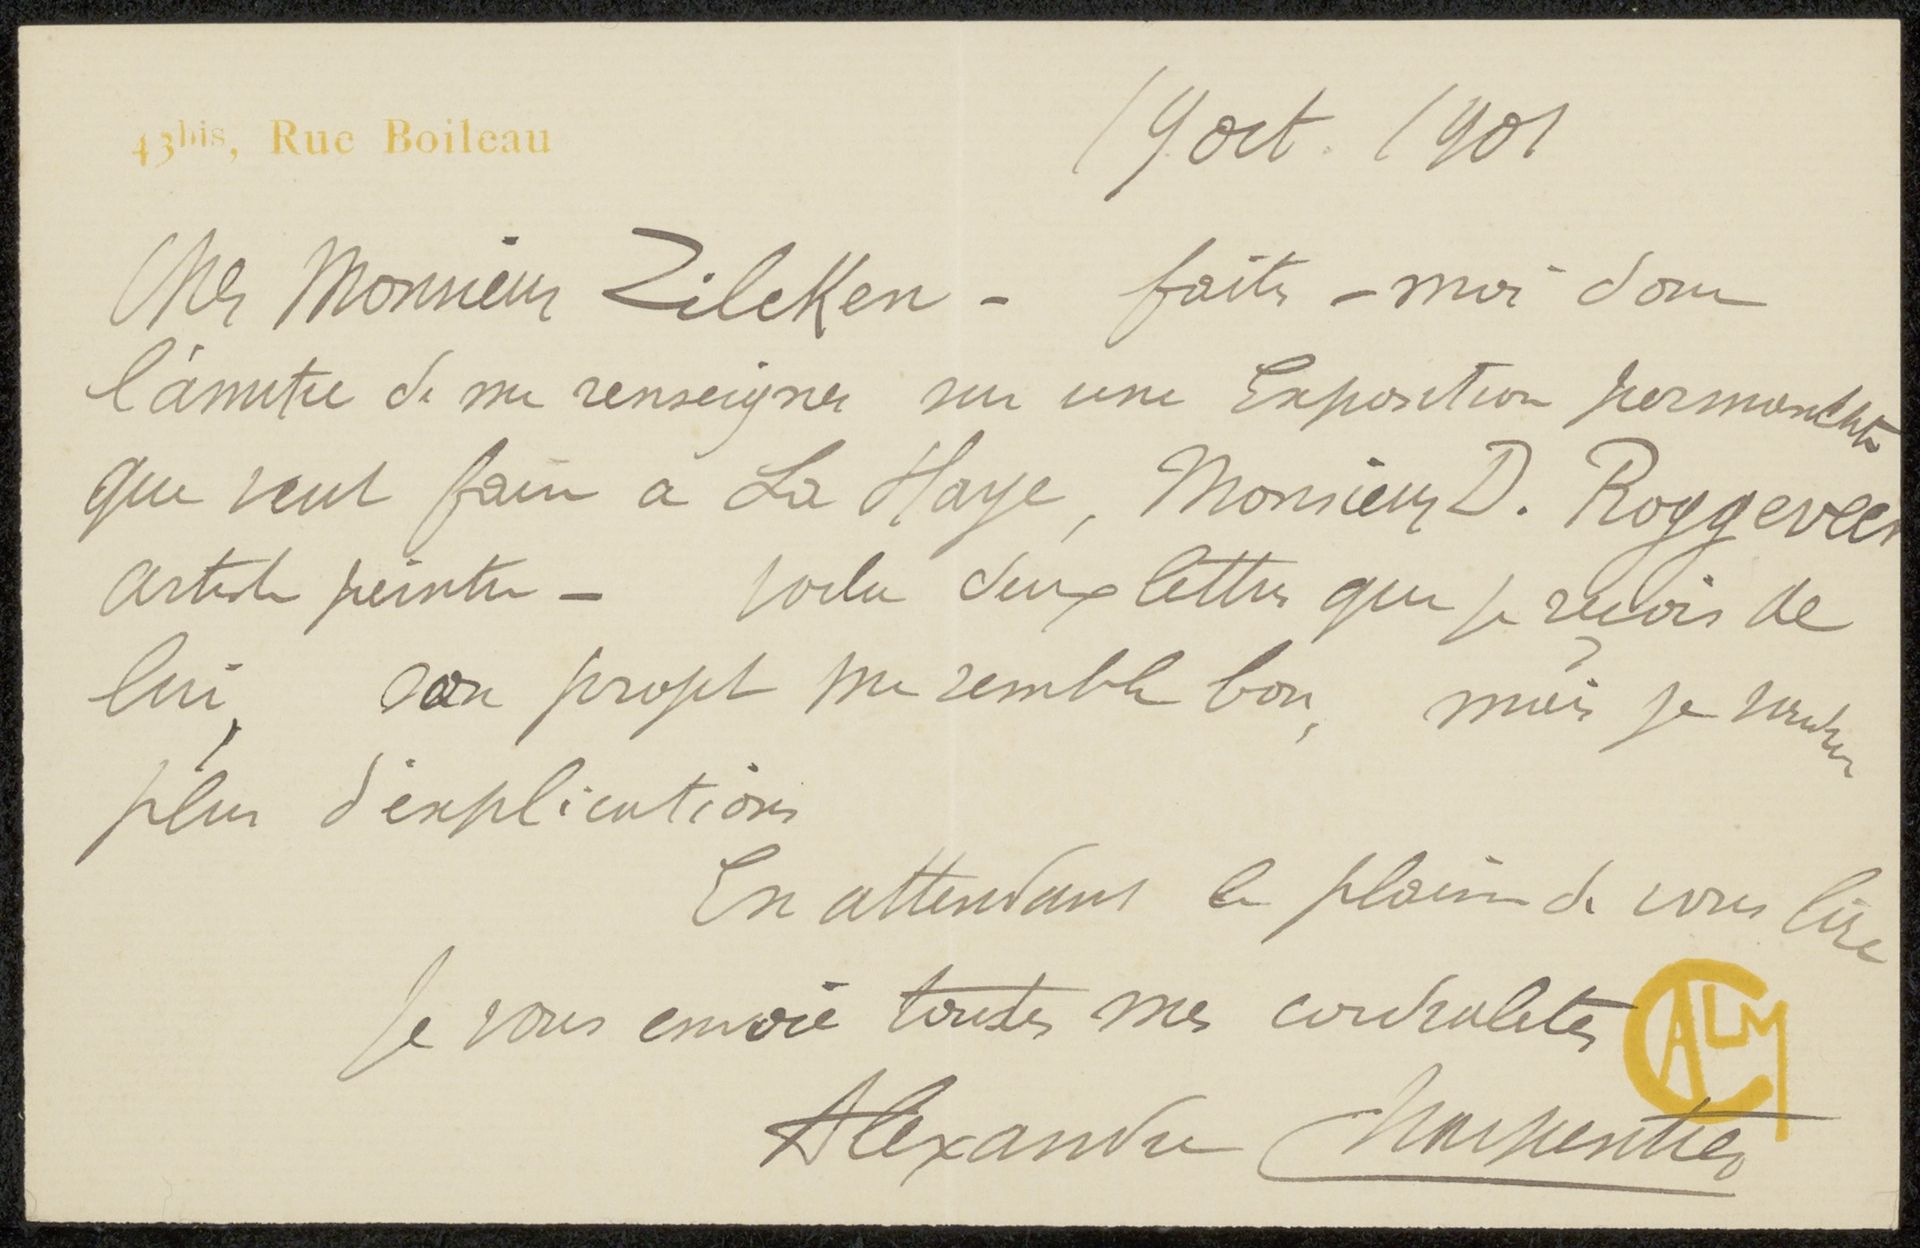 43bis, Rue Boileau
19 oct. 1901
Cher Monsieur Zilcken - faites-moi donc
l'amitié de me renseigner sur une Exposition permanente
que veut faire à La Haye, Monsieur D. Roggeveen
artiste peintre - voila deux lettres que je reçois de
lui, son projet me semble bon, mais je voudrais
plus d'explications
En attendant le plaisir de vous lire
Je vous envoie toutes mes cordialités
CALM
Alexandre Charpentier